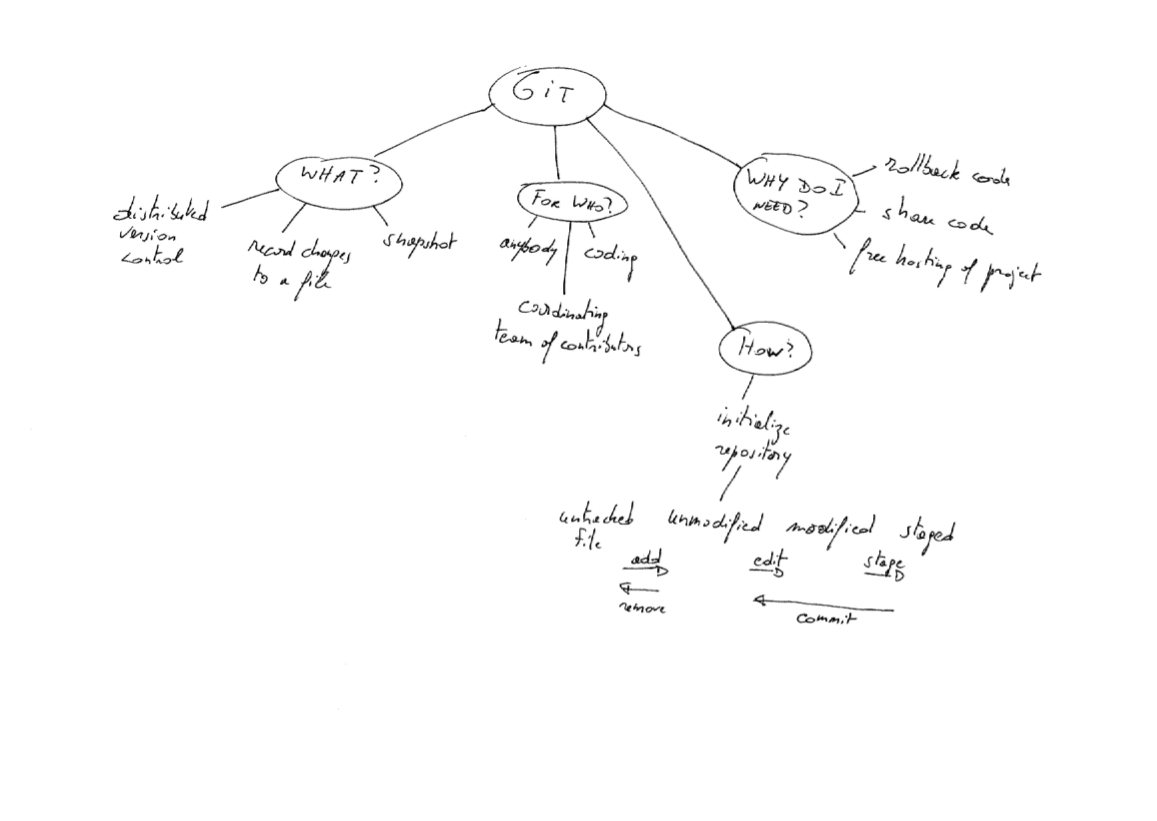 GiT
WHAT?
distributed
version
control
record changes
to a file
snapshot
FOR WHO?
anybody
coding
coordinating
team of contributors
WHY DO I
NEED?
rollback code
share code
free hosting of project
How?
initialize
repository
untracked unmodified modified staged
file
add edit stage
remove
commit